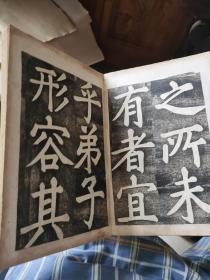 之所未
有者宜
乎弟子
形容其